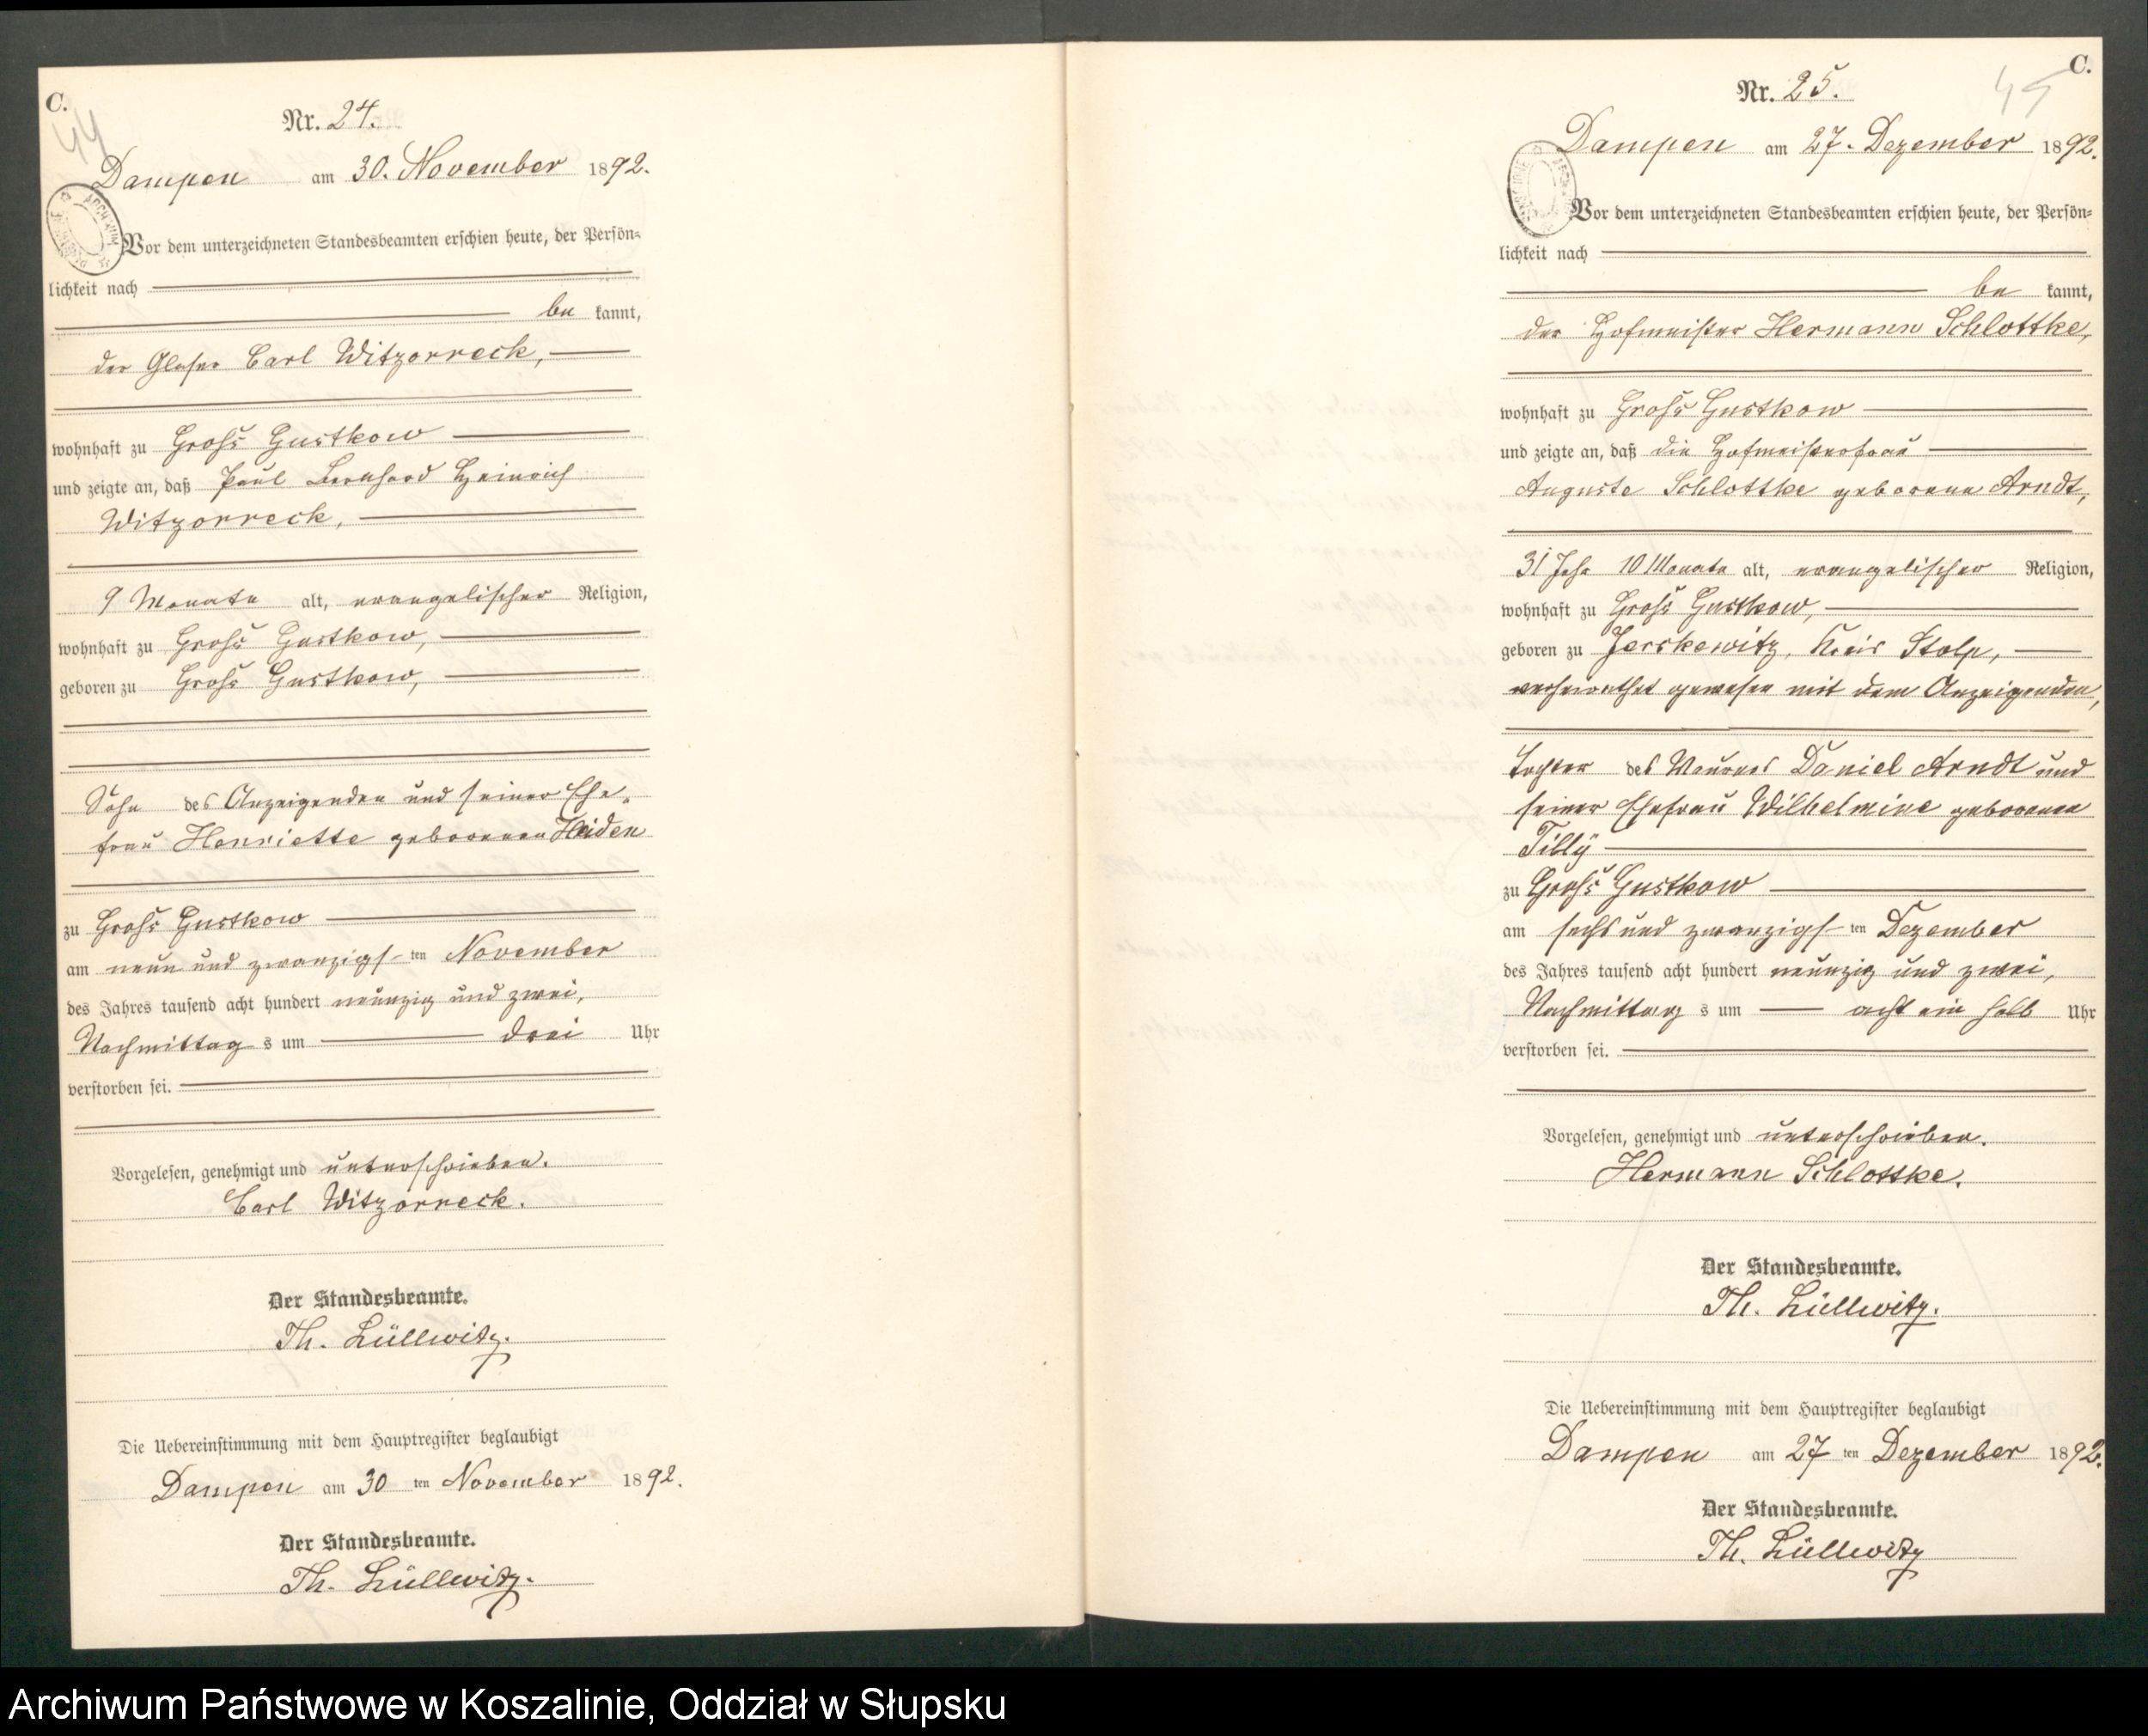 C.
44
Nr. 24.
Dampen am 30. November 1892.
Vor dem unterzeichneten Standesbeamten erschien heute, der Persön-
lichkeit nach
be kannt,
der Glaser Carl Witzorreck,
wohnhaft zu Groß Gustkow
und zeigte an, daß Paul Bernhard Heinrich
Witzorreck,
9 Monate alt, evangelischer Religion,
wohnhaft zu Groß Gustkow,
geboren zu Groß Gustkow,
Sohn des Anzeigenden und seiner Ehe-
frau Henriette geborenen Heiden
zu Groß Gustkow
am neun und zwanzigs-ten November
des Jahres tausend acht hundert neunzig und zwei,
Nachmittag s um drei Uhr
verstorben sei.
Vorgelesen, genehmigt und unterschrieben.
Carl Witzorreck.
Der Standesbeamte.
Th. Lüllwitz.
Die Uebereinstimmung mit dem Hauptregister beglaubigt
Dampen am 30 ten November 1892.
Der Standesbeamte.
Th. Lüllwitz.
C.
45
Nr. 25.
Dampen am 27. Dezember 1892.
Vor dem unterzeichneten Standesbeamten erschien heute, der Persön-
lichkeit nach
be kannt,
der Hofmeister Hermann Schlottke,
wohnhaft zu Groß Gustkow
und zeigte an, daß die Hofmeisterfrau
Auguste Schlottke geborene Arndt,
31 Jahr 10 Monate alt, evangelischer Religion,
wohnhaft zu Groß Gustkow,
geboren zu Jerskewitz, Kreis Stolp,
verheirathet gewesen mit dem Anzeigenden,
Tochter des Maurers Daniel Arndt und
seiner Ehefrau Wilhelmine geborenen
Tilly
zu Groß Gustkow
am sechs und zwanzigs-ten Dezember
des Jahres tausend acht hundert neunzig und zwei,
Nachmittag s um acht ein halb Uhr
verstorben sei.
Vorgelesen, genehmigt und unterschrieben.
Hermann Schlottke.
Der Standesbeamte.
Th. Lüllwitz.
Die Uebereinstimmung mit dem Hauptregister beglaubigt
Dampen am 27 ten Dezember 1892.
Der Standesbeamte.
Th. Lüllwitz
Archiwum Państwowe w Koszalinie, Oddział w Słupsku